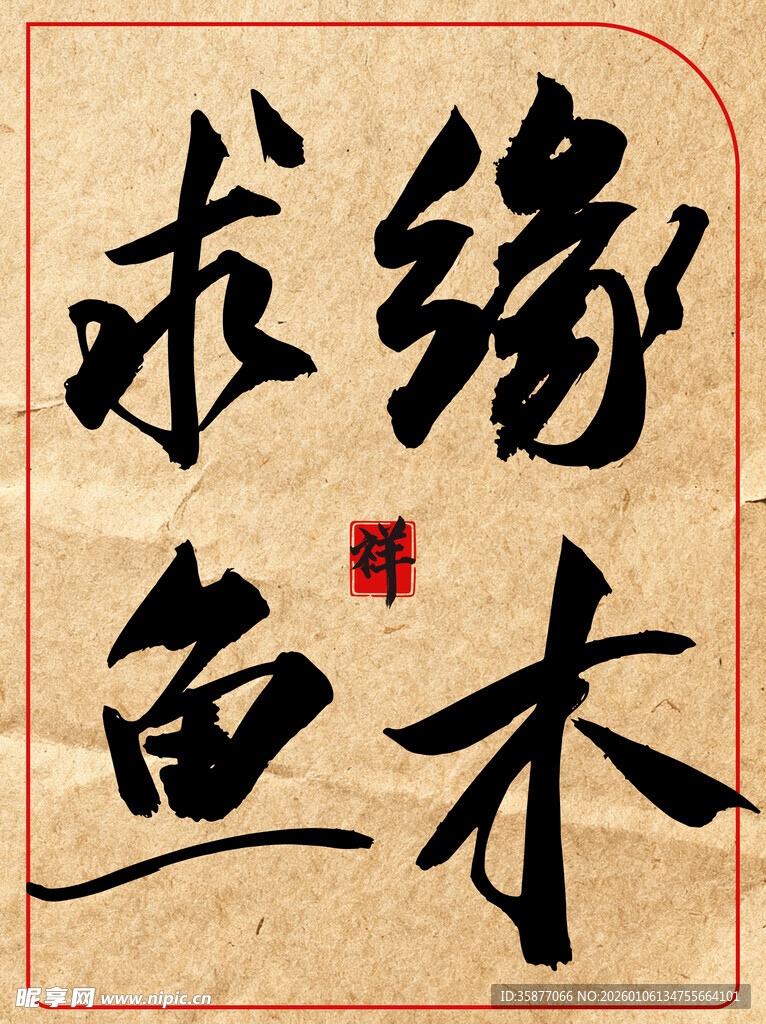 缘木
求鱼
祥
昵享网 www.nipic.cn
ID:35877066 NO:20260106134755664101